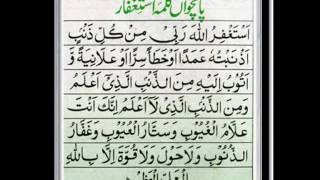 پانچواں کلمہ استغفار
اَسْتَغْفِرُ اللهَ رَبِّیْ مِنْ كُلِّ ذَنْۢبٍ
اَذْنَبْتُهٗ عَمَدًا اَوْ خَطَأً سِرًّا اَوْ عَلَانِيَةً وَّ
اَتُوْبُ اِلَيْهِ مِنَ الذَّنْۢبِ الَّذِیْٓ اَعْلَمُ
وَمِنَ الذَّنْۢبِ الَّذِیْ لَآ اَعْلَمُ اِنَّكَ اَنْتَ
عَلَّامُ الْغُيُوْبِ وَسَتَّارُ الْعُيُوْبِ وَغَفَّارُ
الذُّنُوْبِ وَلَاحَوْلَ وَلَاقُوَّةَ اِلَّا بِاللهِ